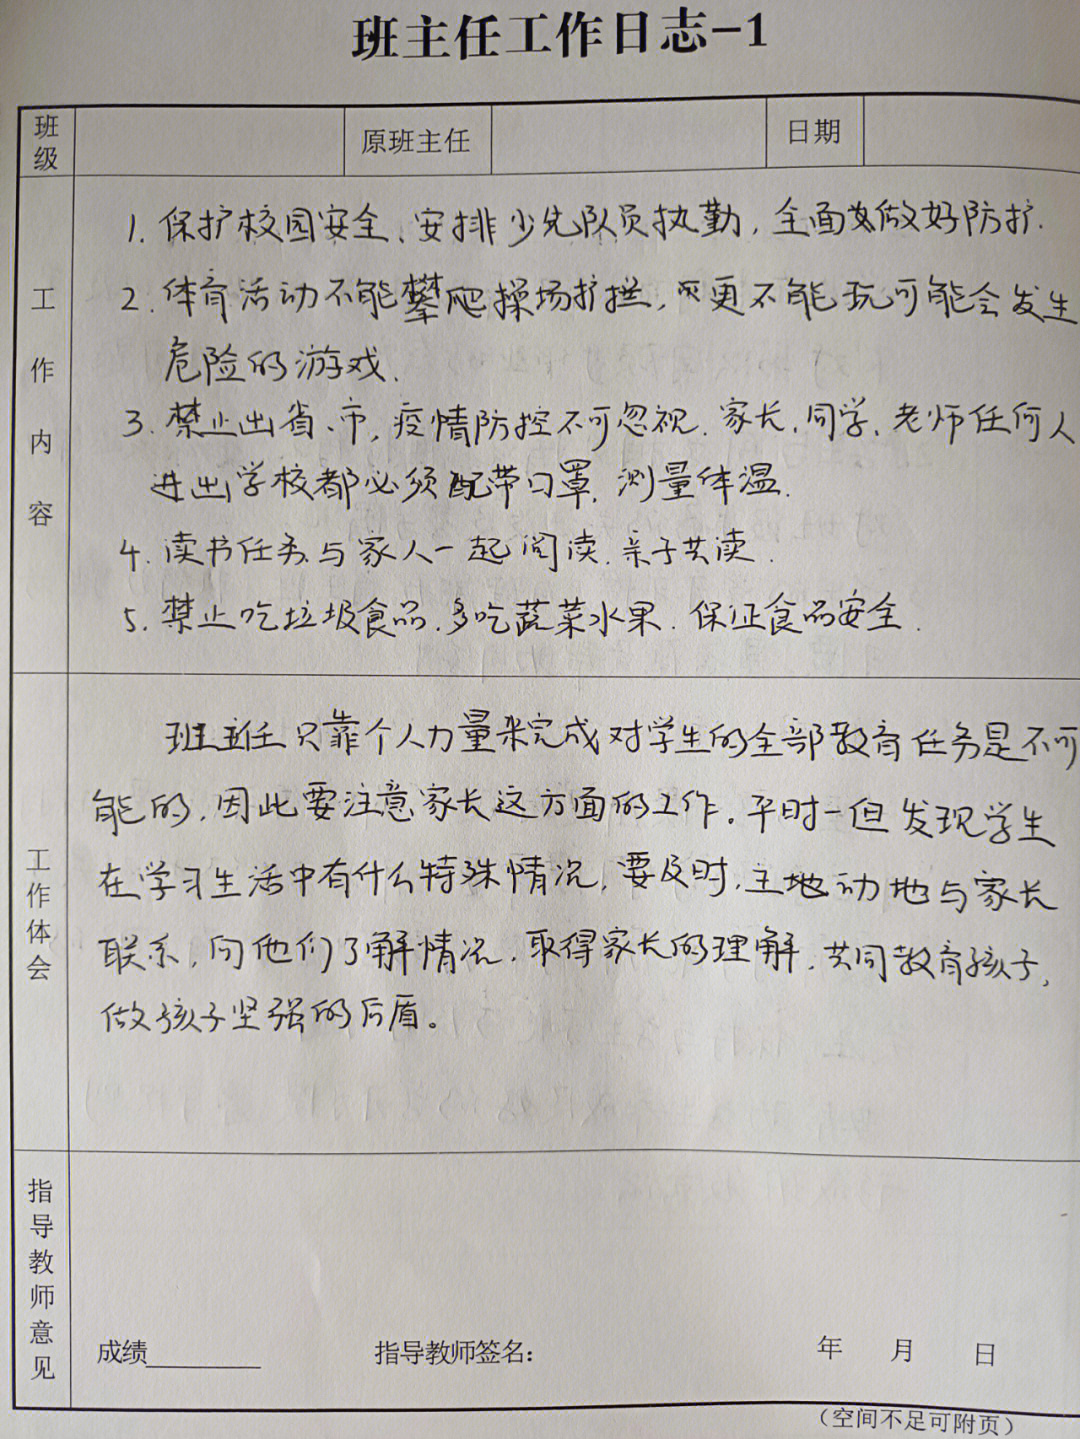 班主任工作日志-1
班级 原班主任 日期
工作内容
1. 保护校园安全、安排少先队员执勤, 全面做好防护.
2. 体育活动不能攀爬操场护拦, 更不能玩可能会发生
危险的游戏.
3. 禁止出省、市, 疫情防控不可忽视. 家长, 同学, 老师任何人
进出学校都必须配带口罩, 测量体温.
4. 读书任务与家人一起阅读. 亲子共读.
5. 禁止吃垃圾食品. 多吃蔬菜水果. 保证食品安全.
工作体会
班主任只靠个人力量来完成对学生的全部教育任务是不可
能的, 因此要注意家长这方面的工作。平时一但发现学生
在学习生活中有什么特殊情况, 要及时, 主地动地与家长
联系, 向他们了解情况, 取得家长的理解, 共同教育孩子,
做孩子坚强的后盾。
指导教师意见
成绩 指导教师签名: 年 月 日
(空间不足可附页)